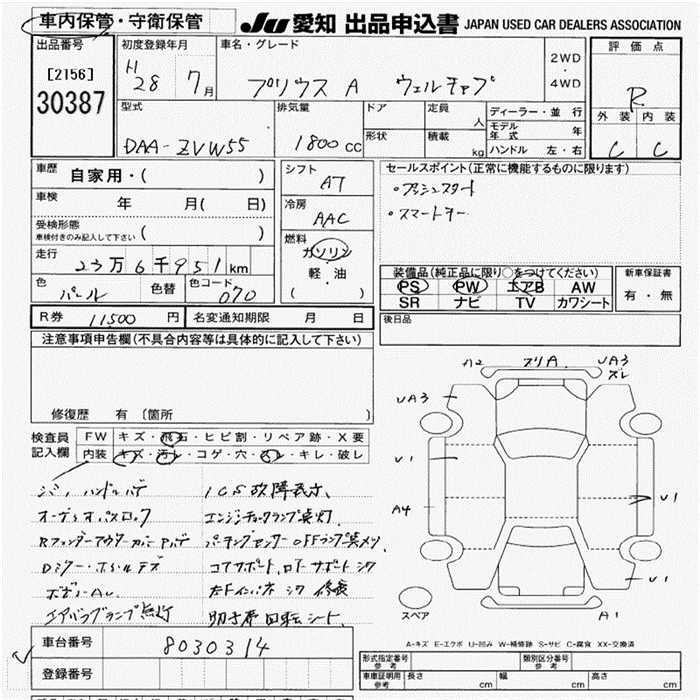 車内保管・守衛保管
JU 愛知 出品申込書 JAPAN USED CAR DEALERS ASSOCIATION
出品番号
[2156]
30387
初度登録年月
H 28 7月
車名・グレード
プリウス A ウェルキャブ
2WD
・
4WD
評価点
R
外装 内装
C C
型式
DAA-ZVW55
排気量
1800 cc
ドア
形状
定員
人
積載
kg
ディーラー・並行
モデル年式 年
ハンドル 左・右
車歴
自家用・( )
車検
年 月( 日)
受検形態
車検付きのみ記入して下さい ( )
走行
23万6千951km
色
パール
色替
色コード
070
シフト
AT
冷房
AAC
燃料
ガソリン
軽・油
( )
セールスポイント(正常に機能するものに限ります)
・プッシュスタート
・スマートキー
装備品(純正品に限り○をつけてください)
PS PW エアB AW
SR ナビ TV カワシート
新車保証書
有・無
R券 11500 円
名変通知期限 月 日
後日品
注意事項申告欄(不具合内容等は具体的に記入して下さい)
修復歴 有 〔箇所 〕
検査員
記入欄
FW キズ・飛石・ヒビ割・リペア跡・X要
内装 キズ・汚レ・コゲ・穴・スレ・キレ・破レ
ICS故障表示
オーディオパスロック
エンジンチェックランプ点灯
パーキングセンサーOFFランプ点メツ
コアサポート、ロアサポートシワ
エアバックランプ点灯
助手席回転シート
A2
プリA
UA3
ズレ
UA3
U1
A4
U1
U1
A1
スペア
A-キズ E-エクボ U-凹み W-補修跡 S-サビ C-腐食 XX-交換済
車台番号
8030314
登録番号
形式指定番号
参考
類別区分番号
参考
車庫証明用
参考
長さ cm
幅 cm
高さ cm